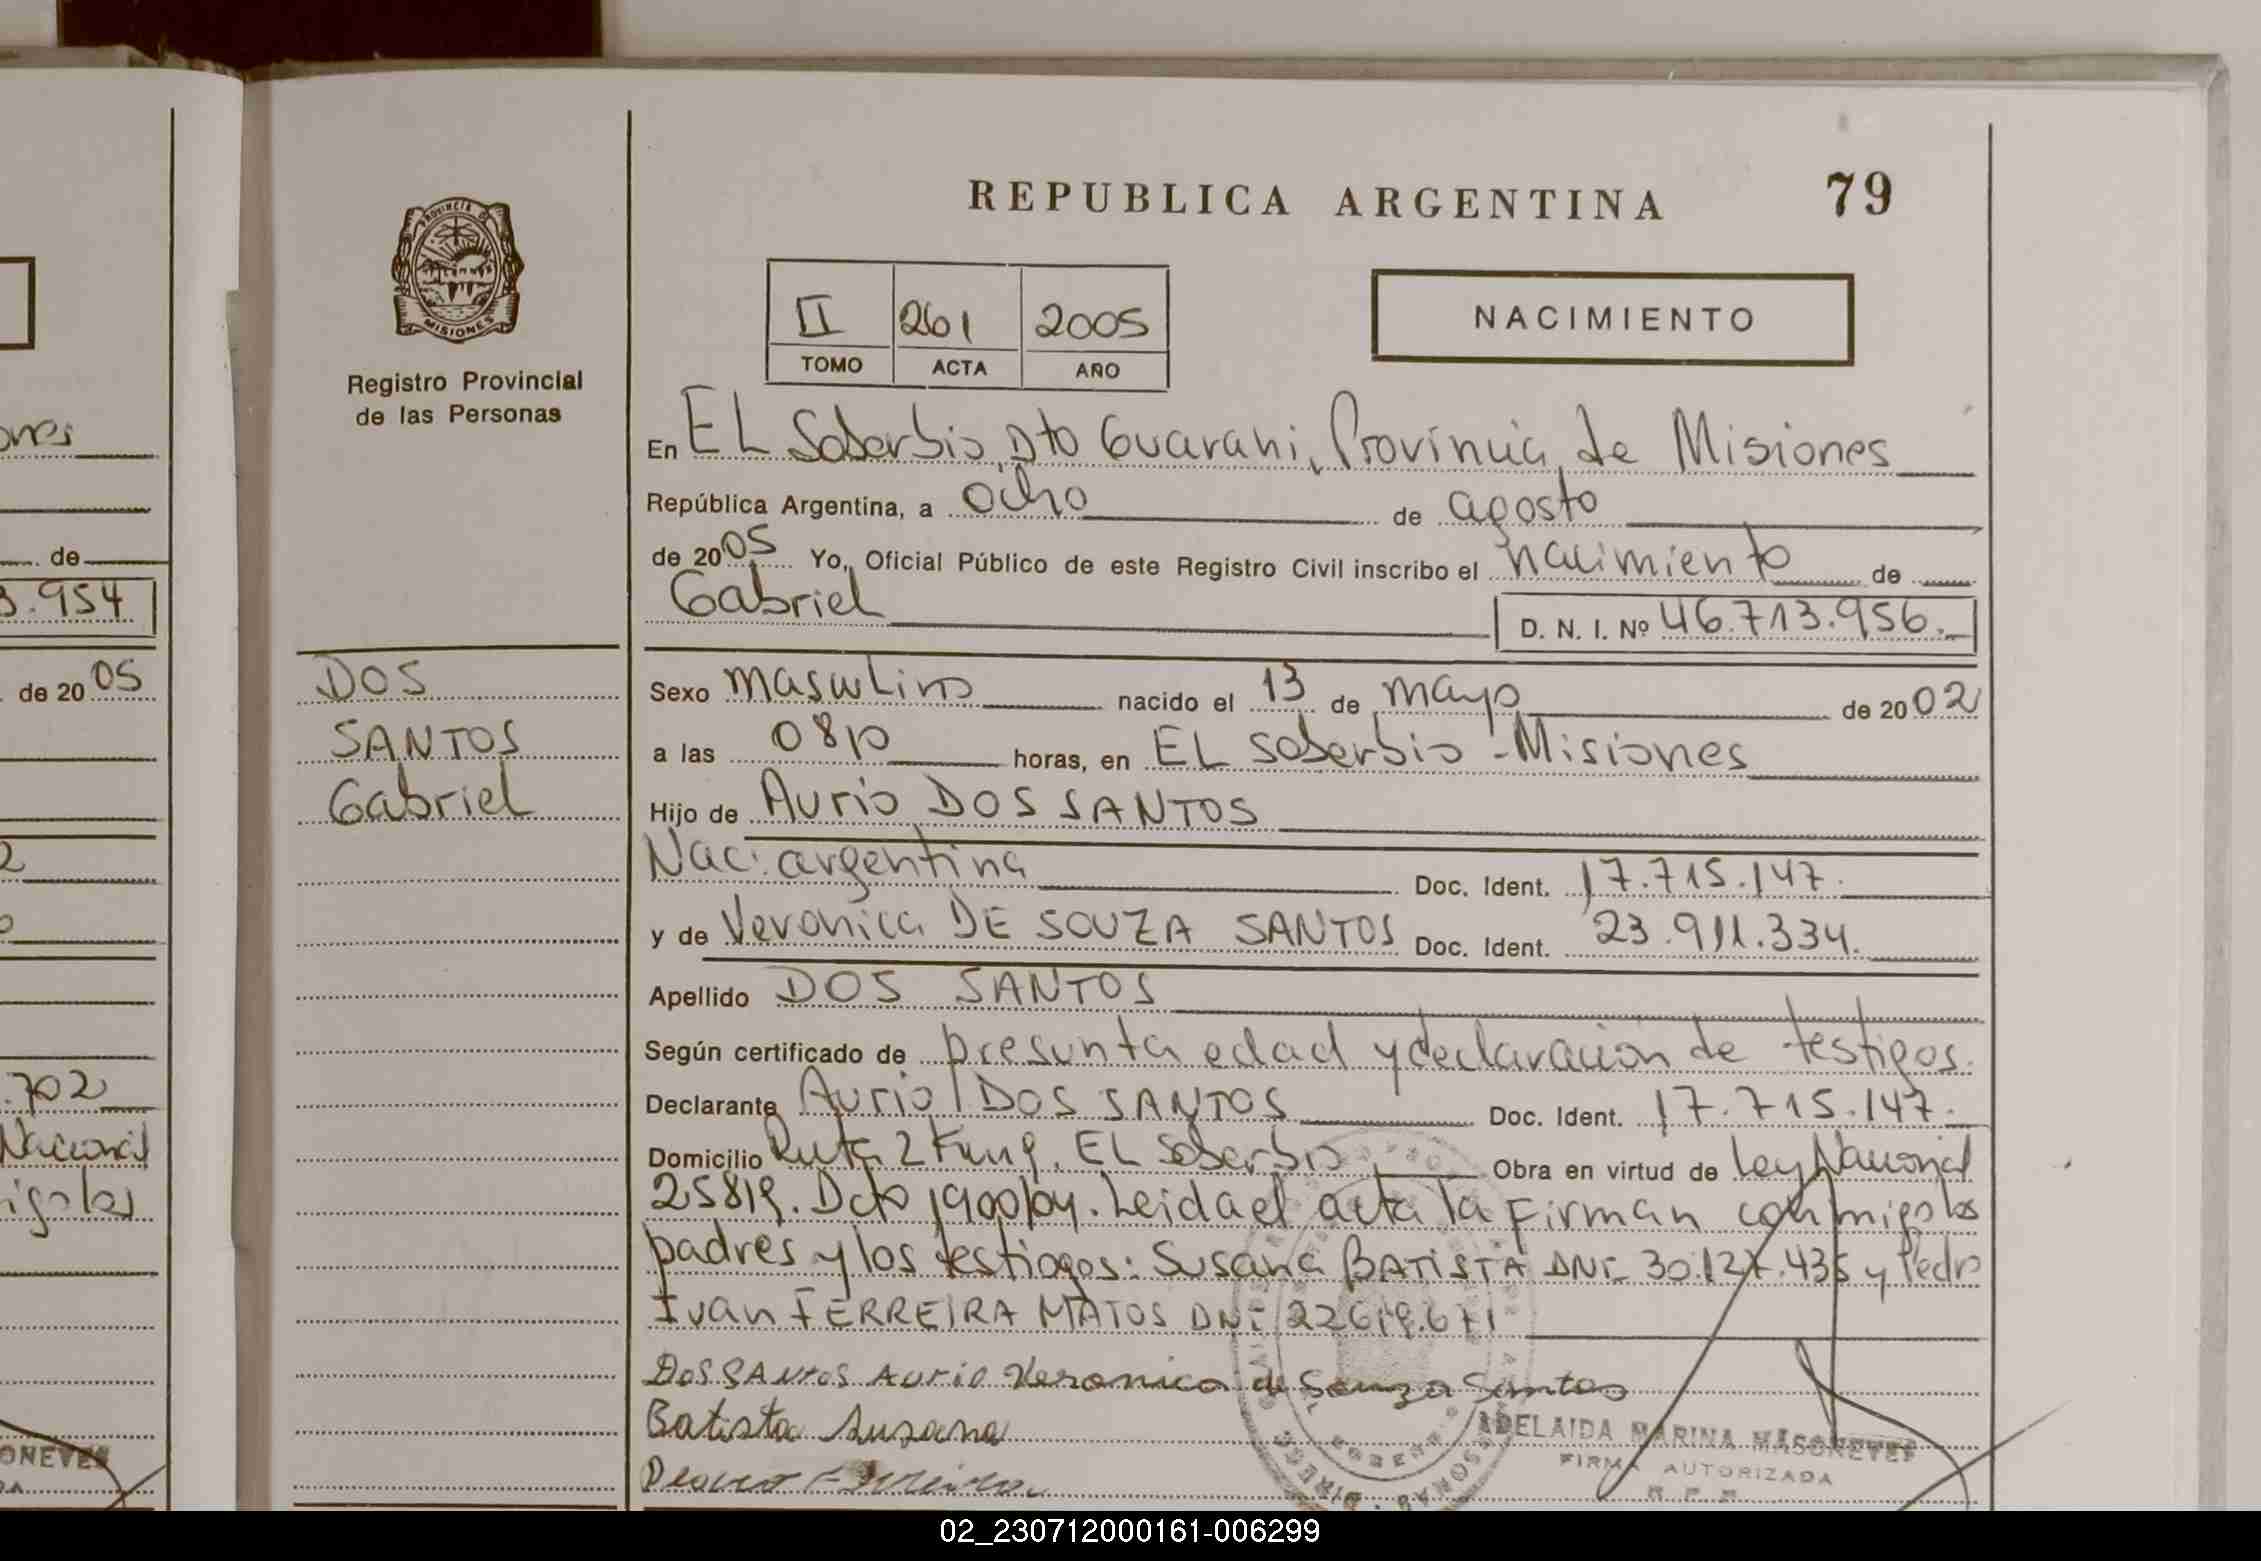 REPUBLICA ARGENTINA 79
PROVINCIA DE
MISIONES
Registro Provincial
de las Personas
II 261 2005
TOMO ACTA AÑO
NACIMIENTO
ones
En EL Soberbio, Dto Guarani, Provincia de Misiones
República Argentina, a ocho de agosto
de 2005 Yo, Oficial Público de este Registro Civil inscribo el nacimiento de
Gabriel D. N. I. Nº 46.713.956.
de
3.954
de 20 05
DOS
SANTOS
Gabriel
Sexo masculino nacido el 13 de mayo de 2002
a las 0810 horas, en EL Soberbio - Misiones
Hijo de Aurio DOS SANTOS
Nac. argentina Doc. Ident. 17.715.147.
y de Veronica DE SOUZA SANTOS Doc. Ident. 23.911.334.
Apellido DOS SANTOS
Según certificado de presunta edad y declaración de testigos.
Declarante Aurio DOS SANTOS Doc. Ident. 17.715.147.
Domicilio Ruta 2 Km 9. EL Soberbio Obra en virtud de Ley Nacional
25819. Dcto 1900/04. Leida el acta la Firman conmigo los
padres y los testigos: Susana BATISTA DNI 30.127.435 y Pedro
Ivan FERREIRA MATOS DNI 22.619.671
.702
Nacional
igo los
Dos SAntos Aurio Veronica de Souza Santos
Batista Susana
ADELAIDA MARINA MASONEVES
FIRMA AUTORIZADA
R.P.P.
ONEVES
02_230712000161-006299